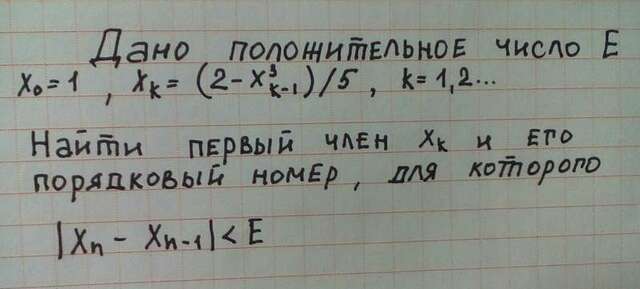 Дано положительное число E
x₀=1, xₖ=(2-x³ₖ₋₁)/5, k=1,2...
Найти первый член xₖ и его
порядковый номер, для которого
|xₙ - xₙ₋₁|< E